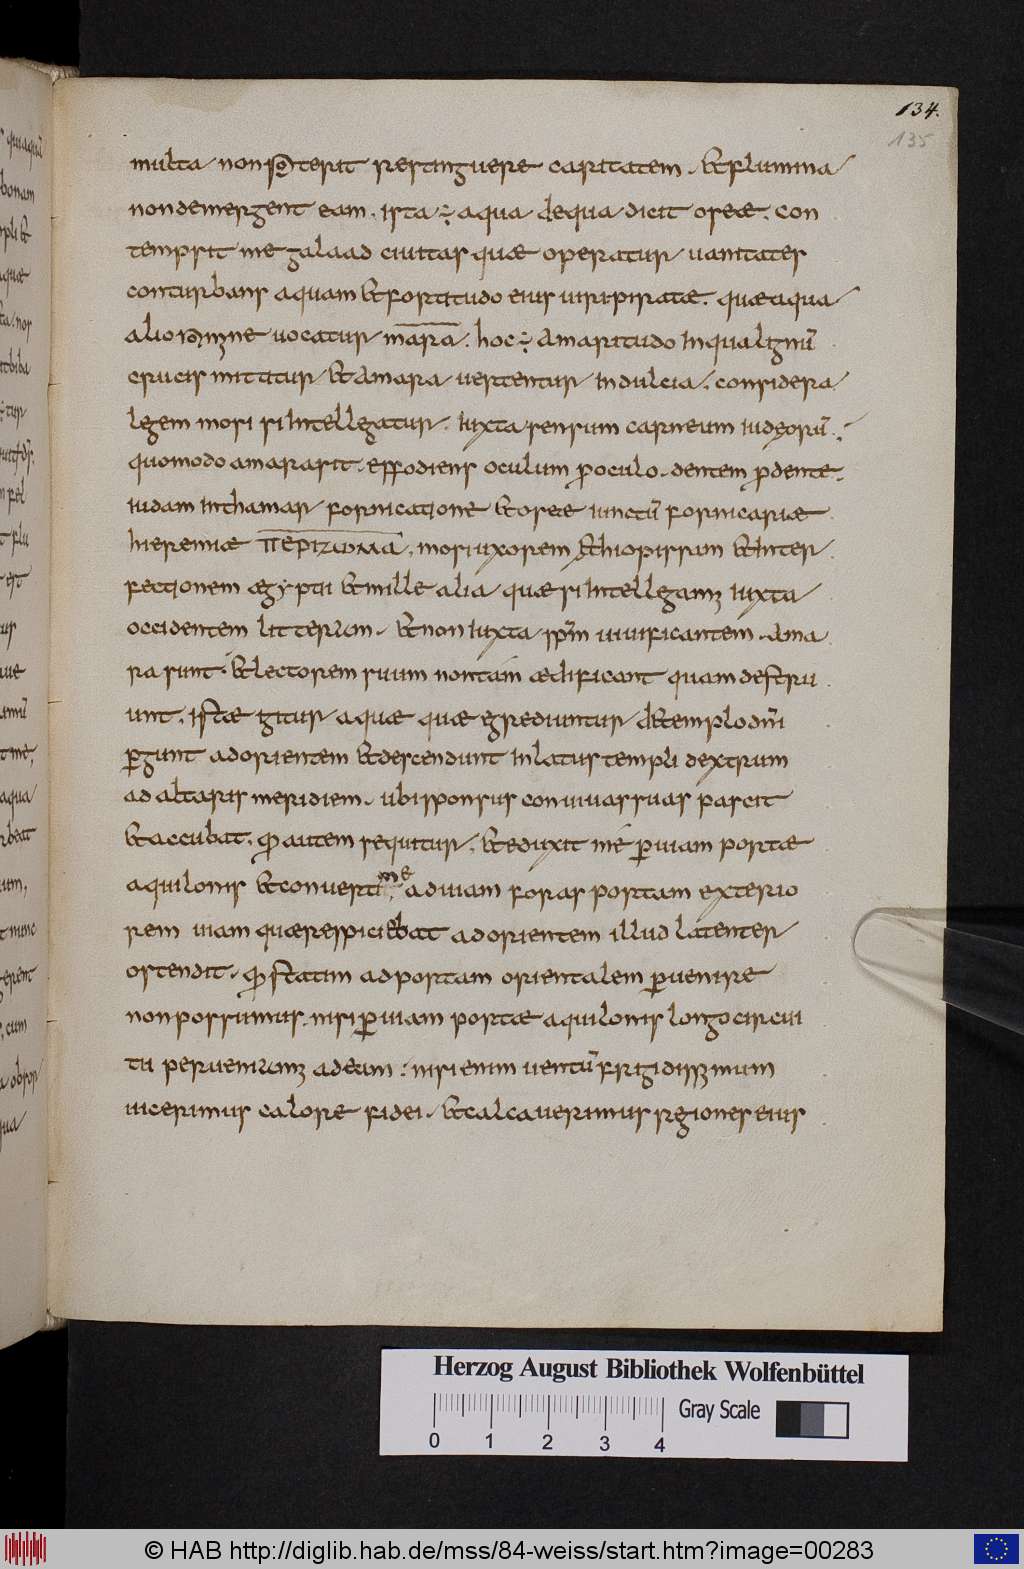 134.
135
multa non poterit restinguere caritatem . & flumina
non demergent eam . ista ÷ aqua de qua dicit oseae . con
tempsit me galaad ciuitas quae operatur uanitates
conturbans aquam & fortitudo eius uiri piratae . quae aqua
alio nomine uocatur marra . hoc ÷ amaritudo in qua lignū
crucis mittitur & amara uertentur in dulcia . considera
legem mosi si intellegatur . iuxta sensum carneum iudęorū .
quomodo amara sit . effodiens oculum ꝓ oculo . dentem ꝓ dente .
iudam in thamar fornicatione & oseae iunctū fornicariae
hieremiae περιζωμα . mosi uxorem &hiopissam & inter
fectionem aegyptii & mille alia quae si intellegam; iuxta
occidentem litteram . & non iuxta sp̄m uiuificantem . ama
ra sunt . & lectorem suum non tam aedificant quam destru
unt . istae igitur aquae quae egrediuntur de templo dn̄i
ꝑgunt ad orientem & descendunt in latus templi dextrum
ad altaris meridiem . ubi sponsus conuiuas suas pascit
& accubat . qđ autem sequitur . & eduxit me ꝑ uiam portae
aquilonis & conuertit me ad uiam foras portam exterio
rem uiam quae respiciebat ad orientem illud latenter
ostendit . qđ statim ad portam orientalem ꝑuenire
non possumus . nisi ꝑ uiam portae aquilonis longo circui
tu perueniam; ad eam . nisi enim uentū frigidissimum
uicerimus calore fidei . & calcauerimus regiones eius
Herzog August Bibliothek Wolfenbüttel
Gray Scale
0 1 2 3 4
© HAB http://diglib.hab.de/mss/84-weiss/start.htm?image=00283